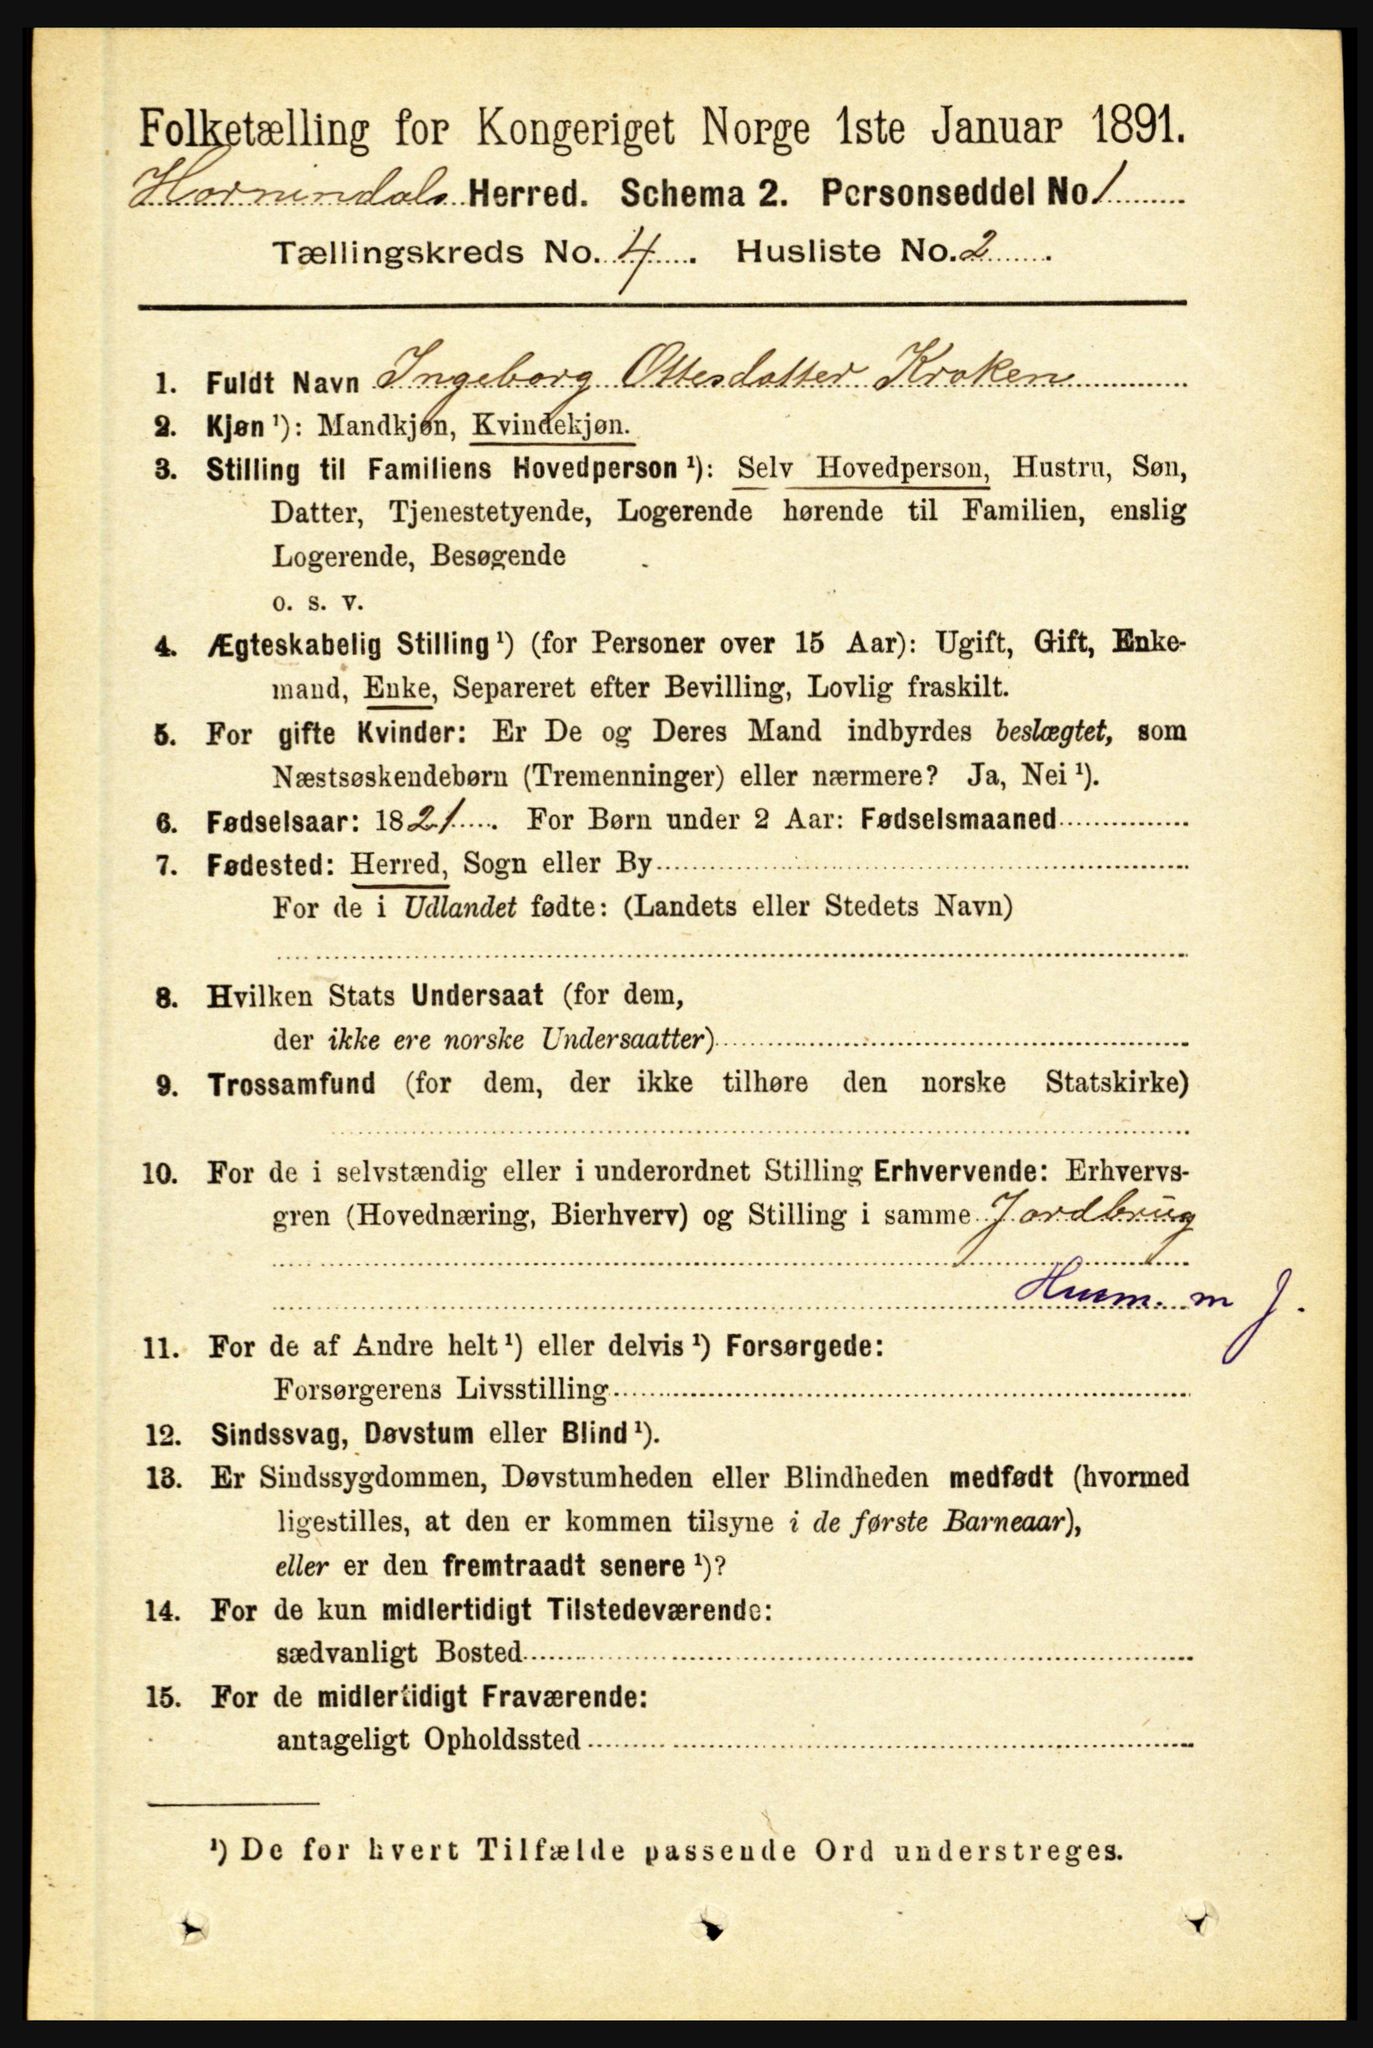 Folketælling for Kongeriget Norge 1ste Januar 1891.
Hornindals Herred. Schema 2. Personseddel No 1
Tællingskreds No. 4. Husliste No. 2.
1. Fuldt Navn Ingeborg Ottesdatter Kroken
2. Kjøn ¹): Mandkjøn, Kvindekjøn.
3. Stilling til Familiens Hovedperson ¹): Selv Hovedperson, Hustru, Søn,
Datter, Tjenestetyende, Logerende hørende til Familien, enslig
Logerende, Besøgende
o. s. v.
4. Ægteskabelig Stilling ¹) (for Personer over 15 Aar): Ugift, Gift, Enke-
mand, Enke, Separeret efter Bevilling, Lovlig fraskilt.
5. For gifte Kvinder: Er De og Deres Mand indbyrdes beslægtet, som
Næstsøskendebørn (Tremenninger) eller nærmere? Ja, Nei ¹).
6. Fødselsaar: 1821. For Børn under 2 Aar: Fødselsmaaned
7. Fødested: Herred, Sogn eller By
For de i Udlandet fødte: (Landets eller Stedets Navn)
8. Hvilken Stats Undersaat (for dem,
der ikke ere norske Undersaatter)
9. Trossamfund (for dem, der ikke tilhøre den norske Statskirke)
10. For de i selvstændig eller i underordnet Stilling Erhvervende: Erhvervs-
gren (Hovednæring, Bierhverv) og Stilling i samme Jordbrug
Husm. m J.
11. For de af Andre helt ¹) eller delvis ¹) Forsørgede:
Forsørgerens Livsstilling
12. Sindssvag, Døvstum eller Blind ¹).
13. Er Sindssygdommen, Døvstumheden eller Blindheden medfødt (hvormed
ligestilles, at den er kommen tilsyne i de første Barneaar),
eller er den fremtraadt senere ¹)?
14. For de kun midlertidigt Tilstedeværende:
sædvanligt Bosted
15. For de midlertidigt Fraværende:
antageligt Opholdssted
¹) De for hvert Tilfælde passende Ord understreges.